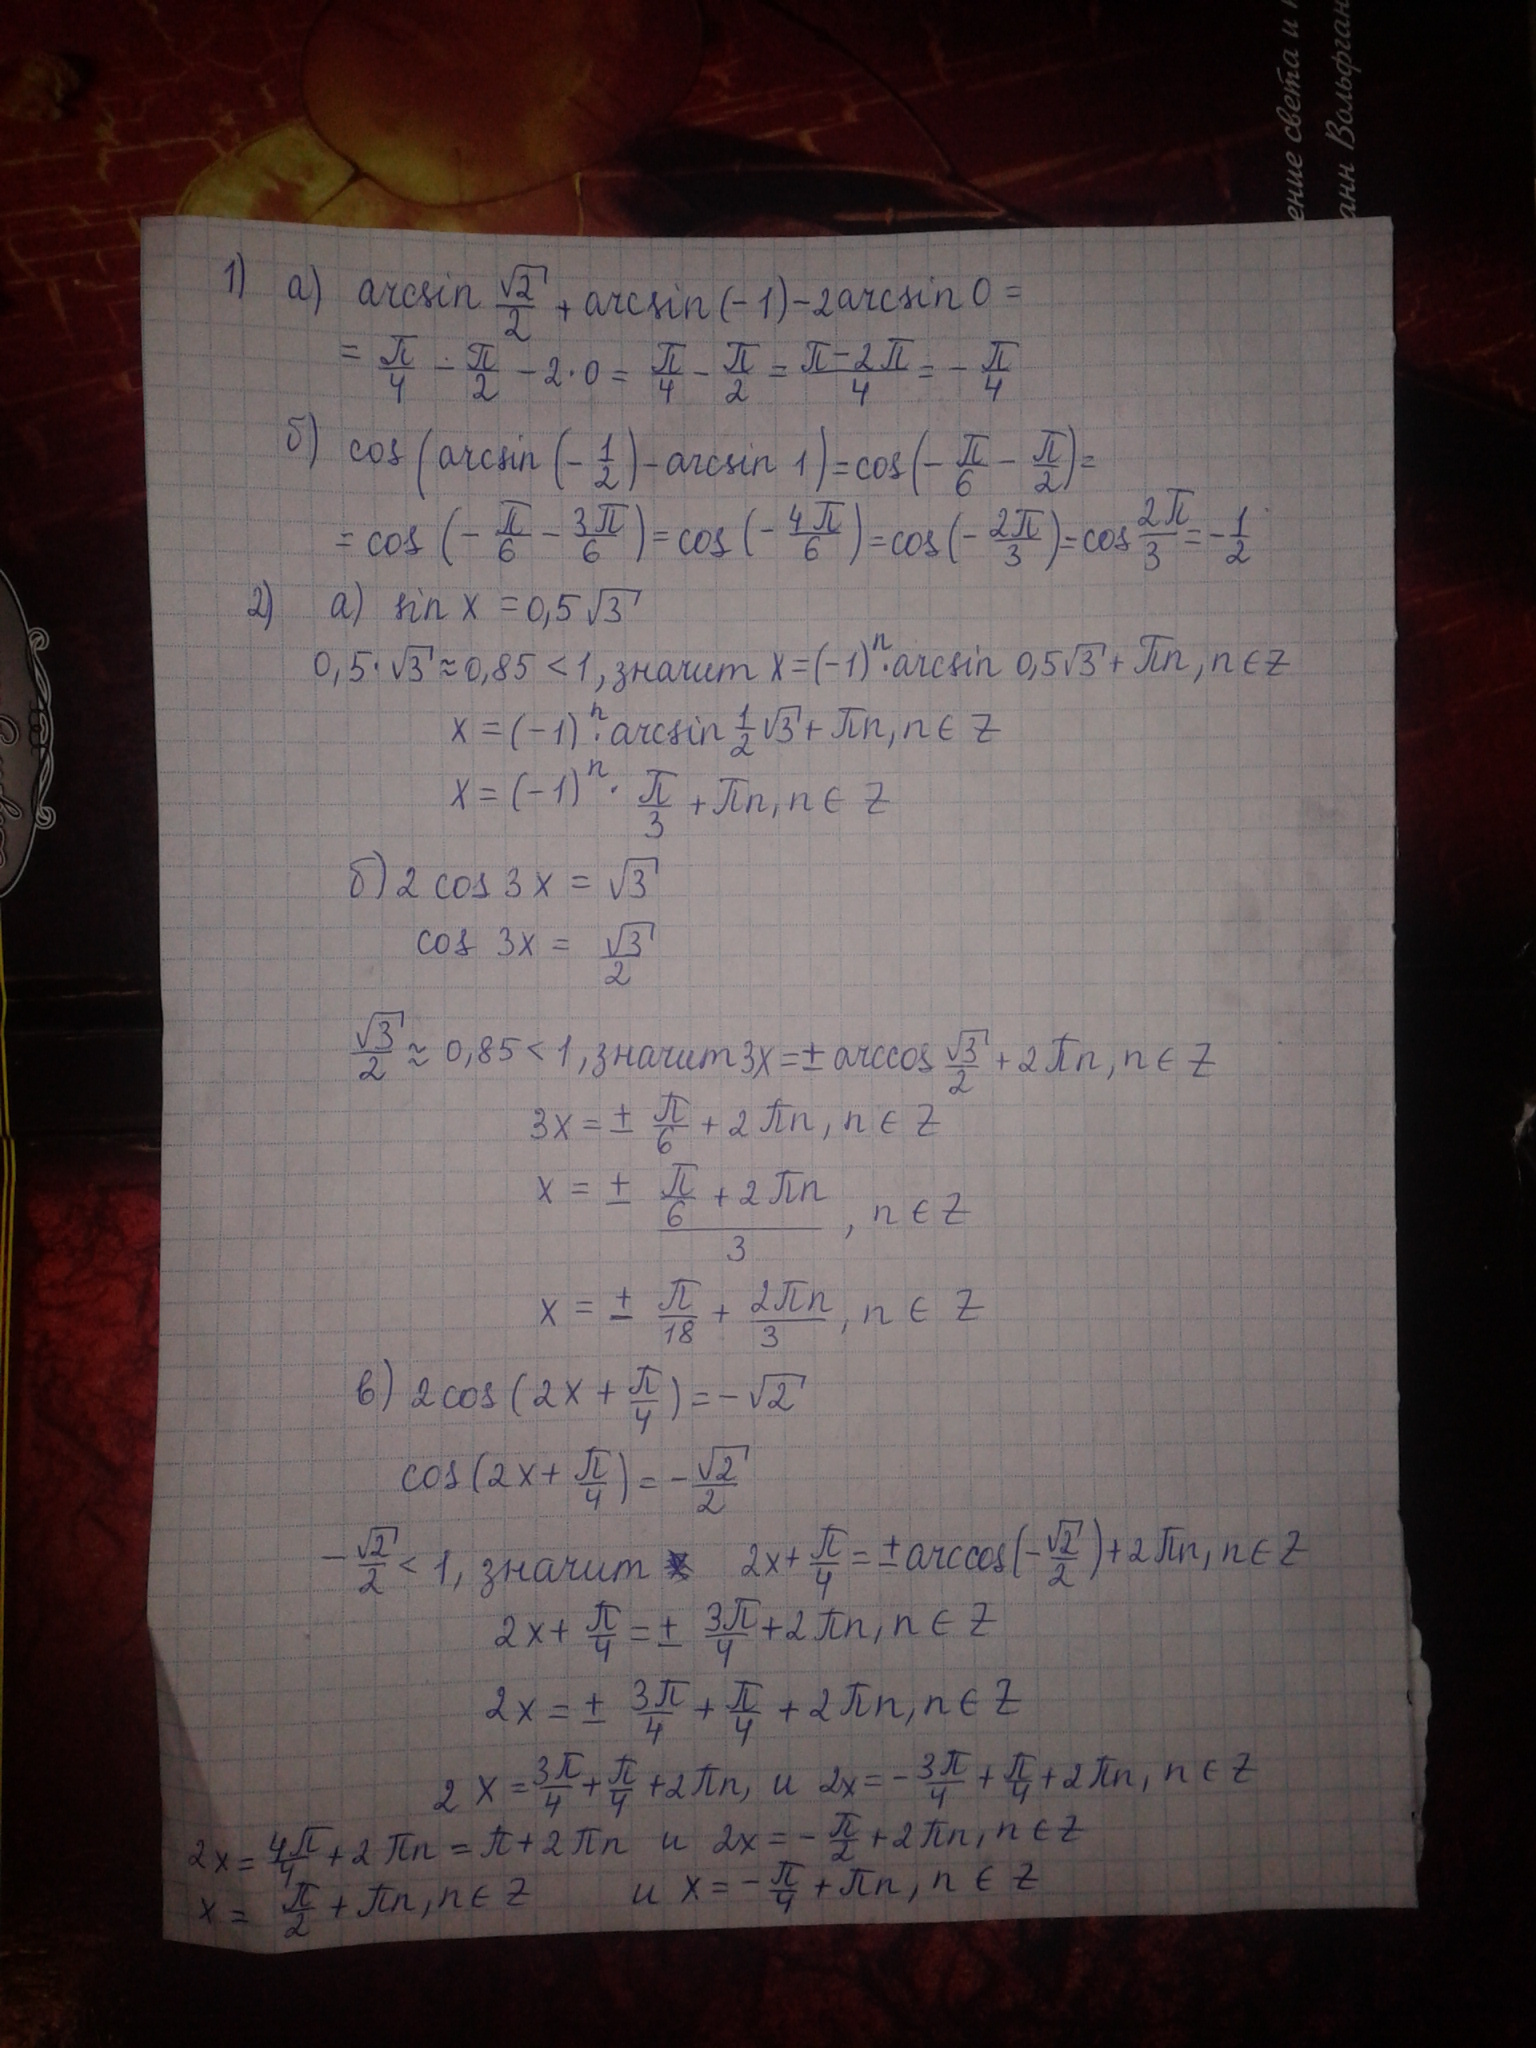 ение света и
анн Вольфган
1) а) arcsin √2/2 + arcsin(-1) - 2arcsin 0 =
= π/4 - π/2 - 2·0 = π/4 - π/2 = (π-2π)/4 = -π/4
б) cos(arcsin(-1/2) - arcsin 1) = cos(-π/6 - π/2) =
= cos(-π/6 - 3π/6) = cos(-4π/6) = cos(-2π/3) = cos 2π/3 = -1/2
2) а) sin x = 0,5√3
0,5·√3 ≈ 0,85 < 1, значит x = (-1)ⁿ·arcsin 0,5√3 + πn, n ∈ Z
x = (-1)ⁿ·arcsin 1/2 √3 + πn, n ∈ Z
x = (-1)ⁿ · π/3 + πn, n ∈ Z
б) 2 cos 3x = √3
cos 3x = √3/2
√3/2 ≈ 0,85 < 1, значит 3x = ± arccos √3/2 + 2πn, n ∈ Z
3x = ± π/6 + 2πn, n ∈ Z
x = ± (π/6 + 2πn)/3, n ∈ Z
x = ± π/18 + 2πn/3, n ∈ Z
в) 2cos(2x + π/4) = -√2
cos(2x + π/4) = -√2/2
-√2/2 < 1, значит 2x + π/4 = ± arccos(-√2/2) + 2πn, n ∈ Z
2x + π/4 = ± 3π/4 + 2πn, n ∈ Z
2x = ± 3π/4 + π/4 + 2πn, n ∈ Z
2x = 3π/4 + π/4 + 2πn, и 2x = -3π/4 + π/4 + 2πn, n ∈ Z
2x = 4π/4 + 2πn = π + 2πn и 2x = -π/2 + 2πn, n ∈ Z
x = π/2 + πn, n ∈ Z и x = -π/4 + πn, n ∈ Z